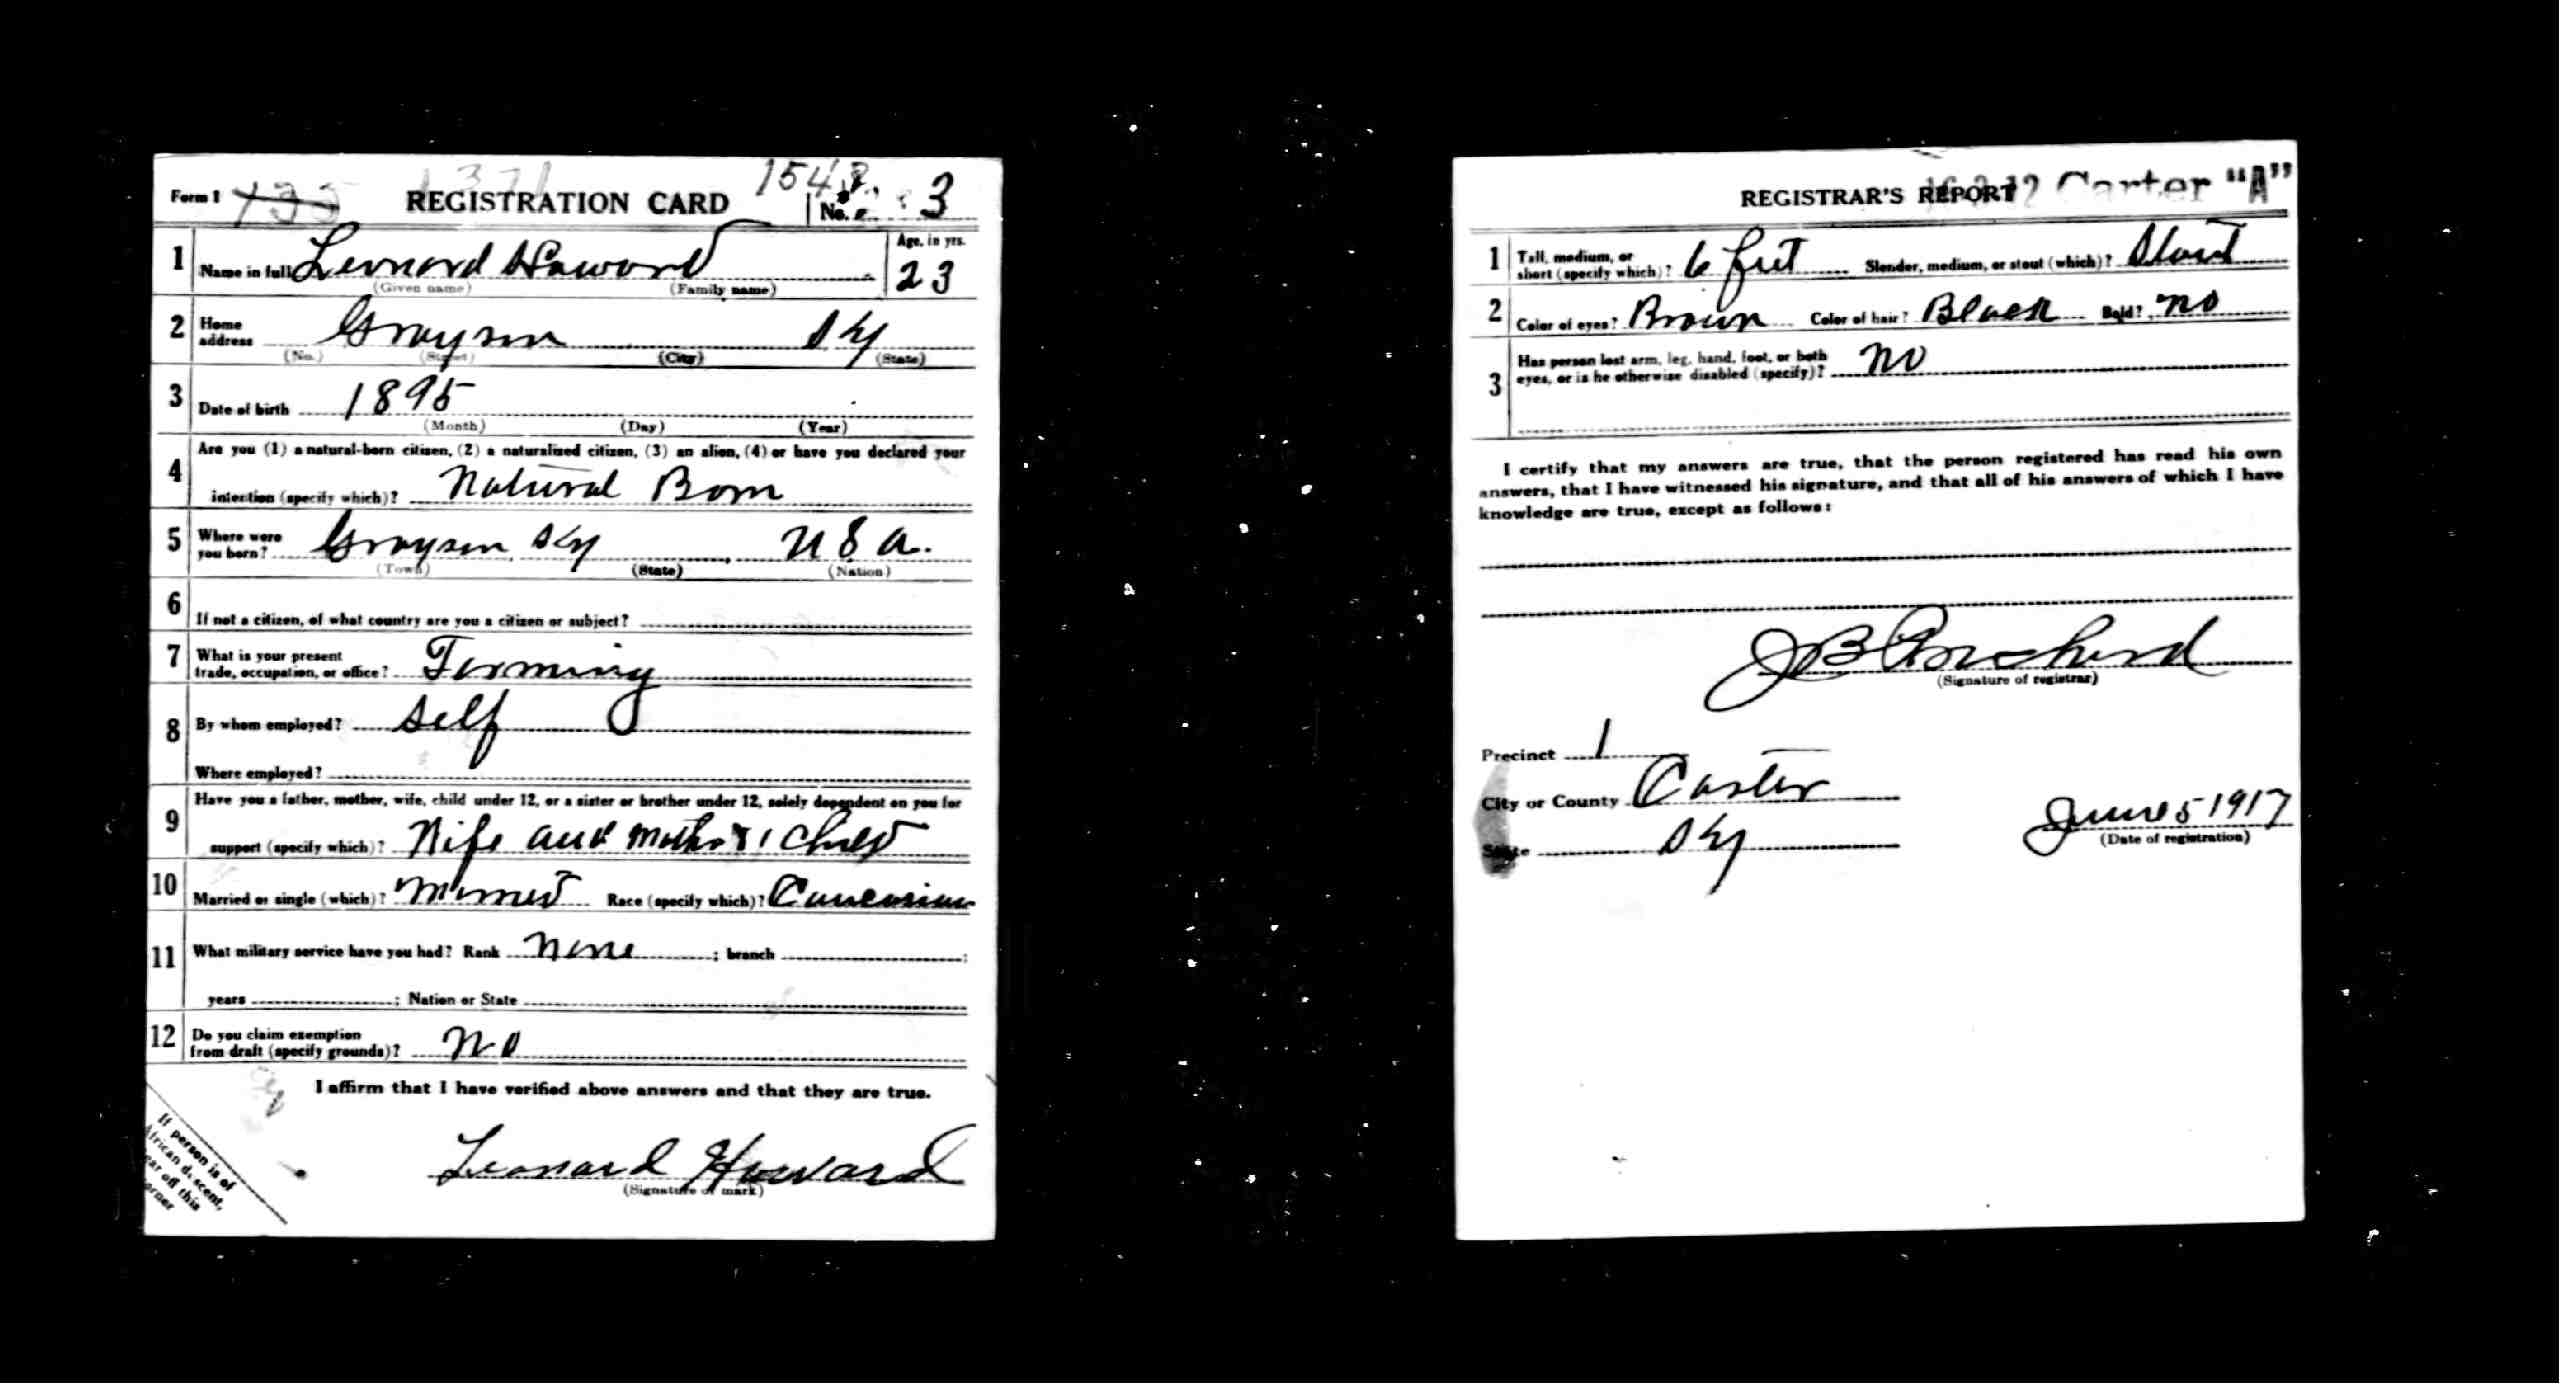 Form 1 735 1371 REGISTRATION CARD 1548 No. 3
1 Name in full Leonard Howard Age, in yrs. 23
(Given name) (Family name)
2 Home address Grayson Ky
(No.) (Street) (City) (State)
3 Date of birth 1895
(Month) (Day) (Year)
4 Are you (1) a natural-born citizen, (2) a naturalized citizen, (3) an alien, (4) or have you declared your
intention (specify which)? Natural Born
5 Where were you born? Grayson Ky U S A.
(Town) (State) (Nation)
6 If not a citizen, of what country are you a citizen or subject?
7 What is your present trade, occupation, or office? Farming
8 By whom employed? Self
Where employed?
9 Have you a father, mother, wife, child under 12, or a sister or brother under 12, solely dependent on you for
support (specify which)? Wife and Mother & 1 Child
10 Married or single (which)? Married Race (specify which)? Caucasian
11 What military service have you had? Rank none ; branch ;
years ; Nation or State
12 Do you claim exemption from draft (specify grounds)? No
I affirm that I have verified above answers and that they are true.
Leonard Howard
(Signature or mark)
If person is of
African descent,
tear off this
corner
REGISTRAR'S REPORT 16 3 12 Carter "A"
1 Tall, medium, or short (specify which)? 6 feet Slender, medium, or stout (which)? Stout
2 Color of eyes? Brown Color of hair? Black Bald? No
3 Has person lost arm, leg, hand, foot, or both eyes, or is he otherwise disabled (specify)? No
I certify that my answers are true, that the person registered has read his own
answers, that I have witnessed his signature, and that all of his answers of which I have
knowledge are true, except as follows:
J B
(Signature of registrar)
Precinct 1
City or County Carter
State Ky
June 5 1917
(Date of registration)